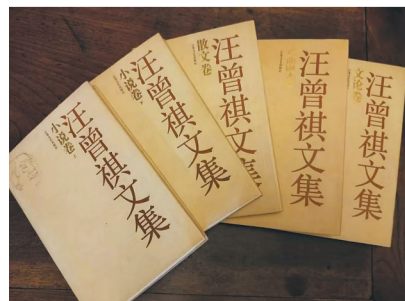 汪曾祺文集
小说卷
汪曾祺文集
小说卷
汪曾祺文集
散文卷
汪曾祺文集
汪曾祺文集
文论卷